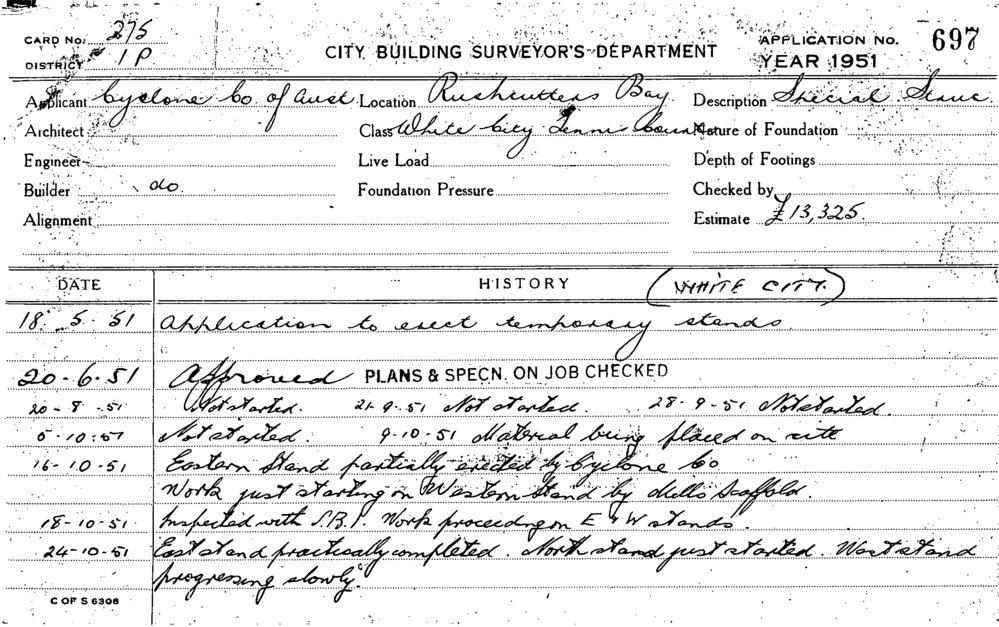 CARD No. 275
DISTRICT 1 P
CITY BUILDING SURVEYOR'S DEPARTMENT
APPLICATION No. 697
YEAR 1951
Applicant Cyclone Co of Aust Location Rushcutters Bay Description Special Struc.
Architect Class White City Tennis Courts Nature of Foundation
Engineer Live Load Depth of Footings
Builder do Foundation Pressure Checked by
Alignment Estimate £13,325
DATE HISTORY (WHITE CITY)
18. 5. 51 Application to erect temporary stands
20-6-51 Approved PLANS & SPECN. ON JOB CHECKED
20-8-51 Not started. 21-9-51 Not started. 28-9-51 Not started.
5-10-51 Not started. 9-10-51 Material being placed on site
16-10-51 Eastern Stand partially erected by Cyclone Co
Work just starting on Western Stand by Mills Scaffold.
18-10-51 Inspected with S.B.I. Work proceeding on E & W stands.
24-10-51 East stand practically completed. North stand just started. West stand
progressing slowly.
C OF S 6306